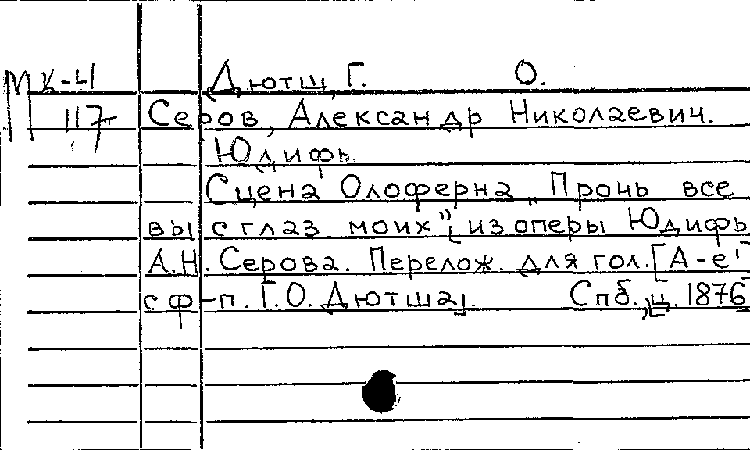 МК-4 Дютш, Г. О.
117 Серов, Александр Николаевич.
Юдифь.
Сцена Олоферна „Прочь все
вы с глаз моих" [из оперы Юдифь
А.Н. Серова. Перелож. для гол. [А-е']
с ф-п. Г.О. Дютша]. Спб., ц. 1876